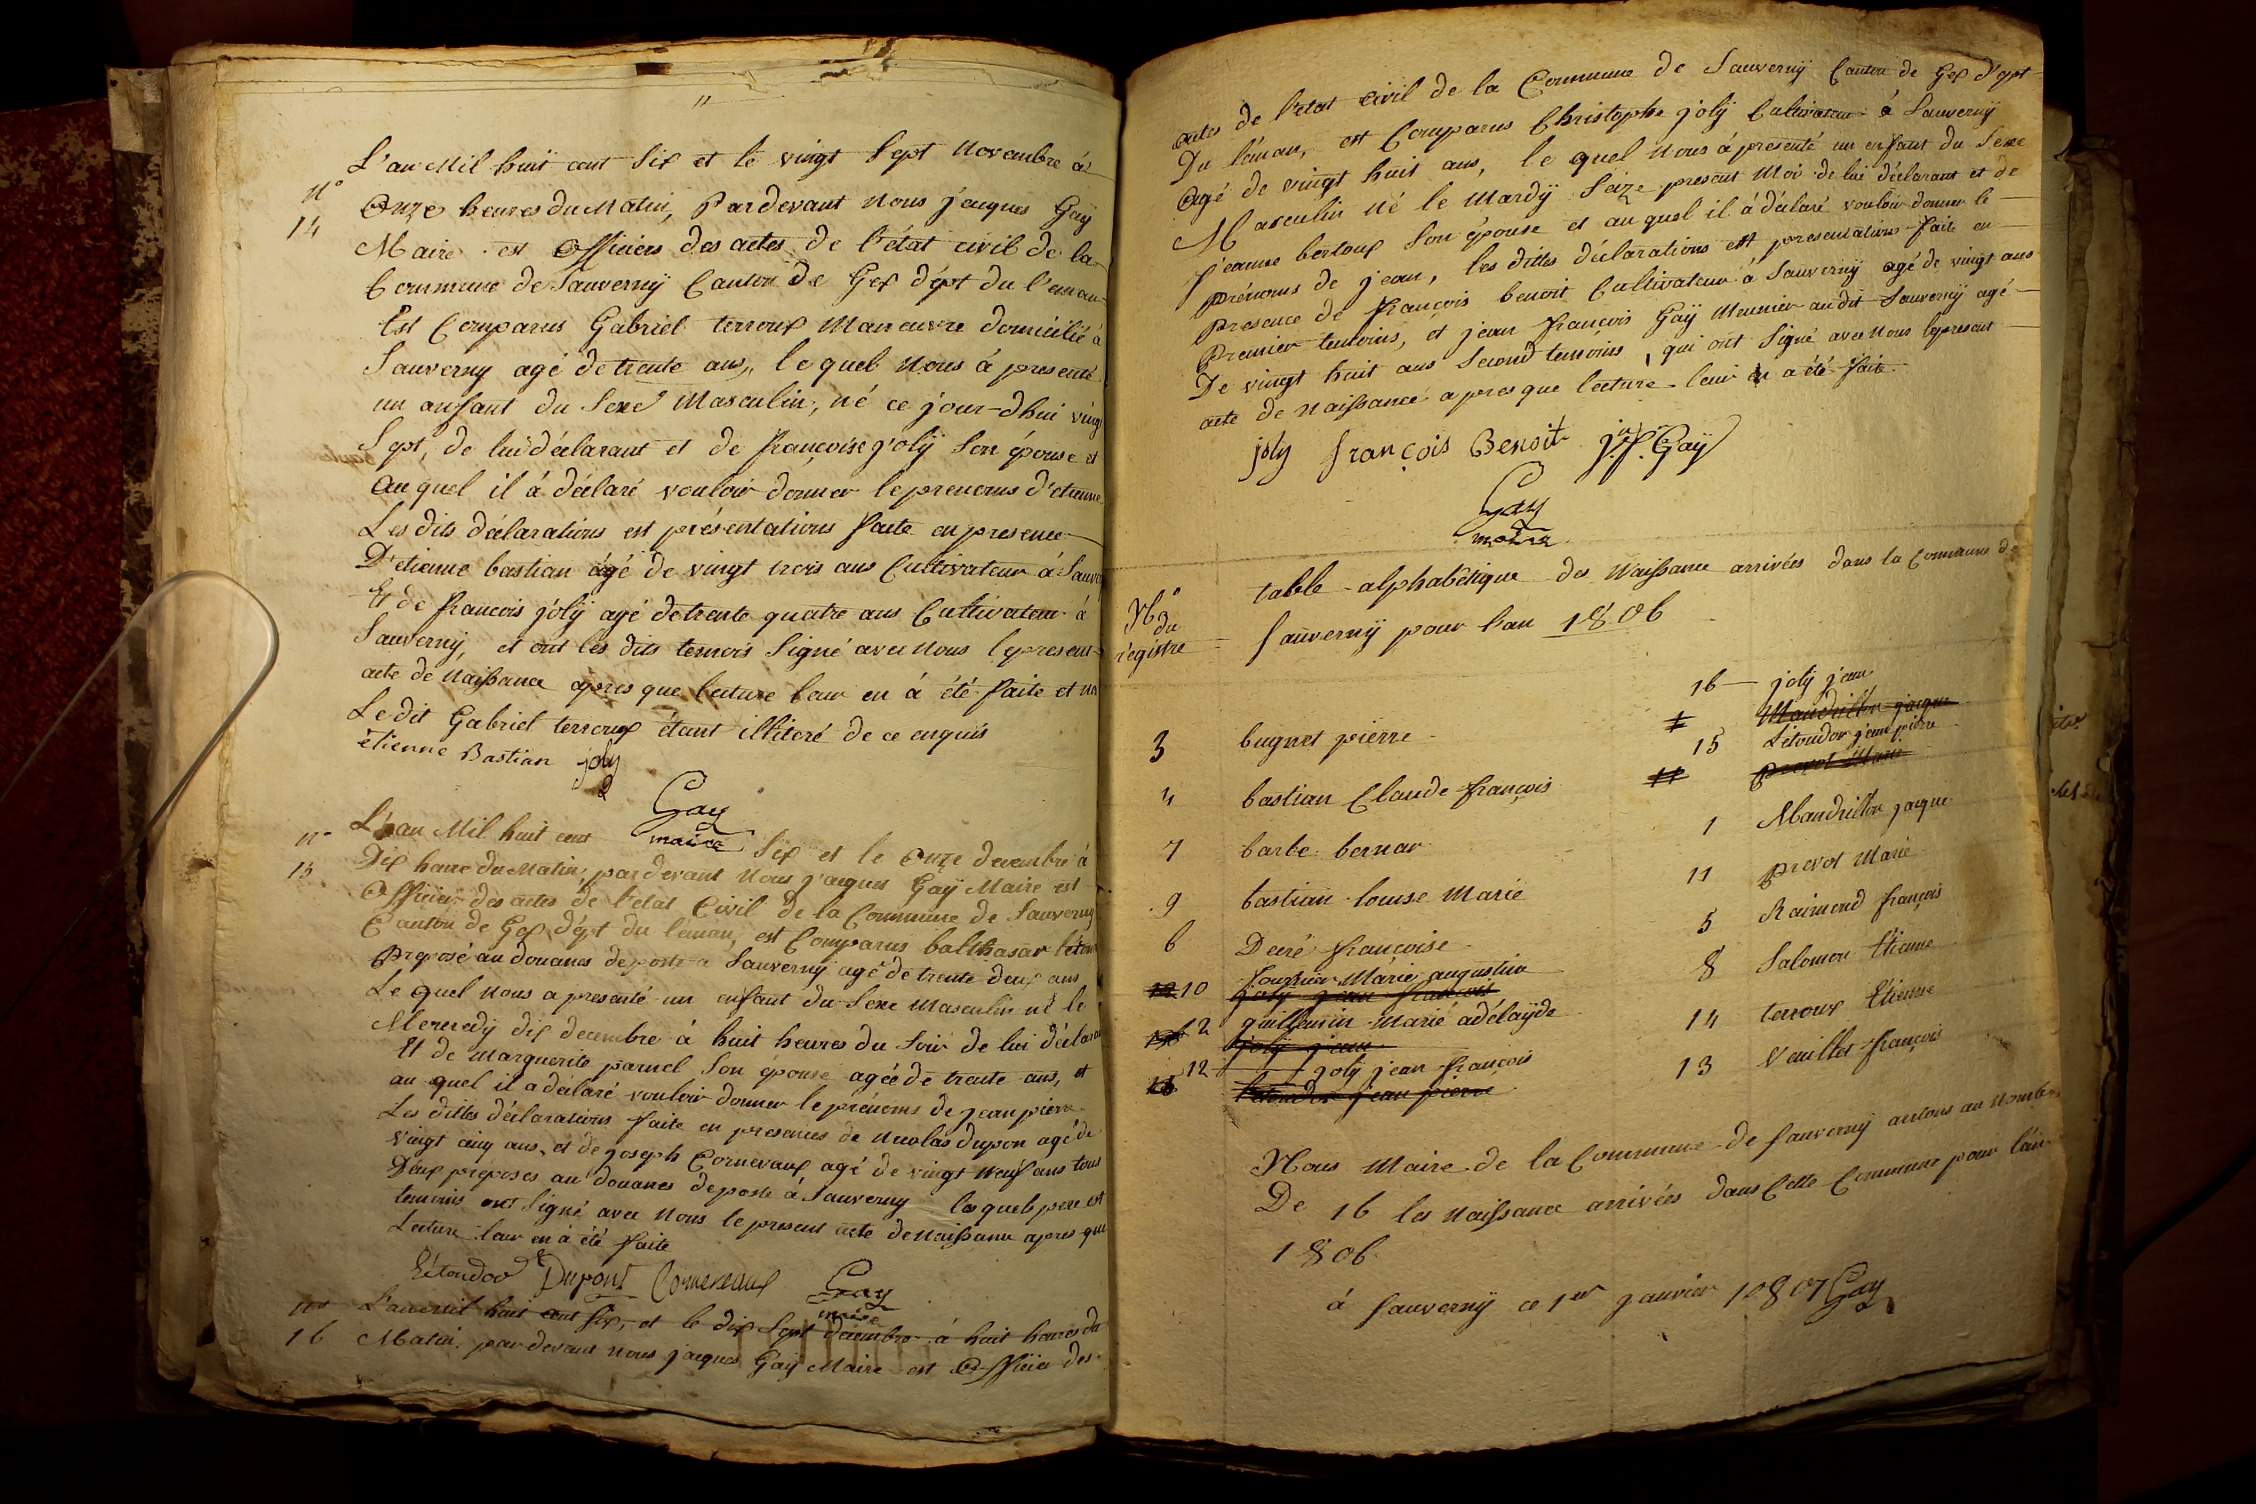 11
L'an Mil huit cent Six et le vingt Sept Novembre à
N°
14
Onze heures du Matin, Pardevant Nous jacques Gaÿ
Maire est Officiers des actes de l'état civil de la
Commune de Sauvernÿ Canton de Gex dépt du l'eman
Est Comparus Gabriel terroux Maneuvre domicilié à
Sauverny agé de trente ans, le quel Nous à presenté
un anfant du Sexe Masculin, né ce jour-dhui vingt
Sept, de lui déclarant et de françoise jolÿ Son épouse et
au quel il à déclaré vouloir donner le prenoms d'etienne
Les dits déclarations est présentations faite en presence
D'etienne bastian âgé de vingt trois ans Cultivateur à Sauver
Et de francois jolÿ agé de trente quatre ans Cultivateur à
Sauvernÿ, et ont les dits temois Signé avec Nous le present
acte de Naissance apres que lecture leur en à été faite et non
Le dit Gabriel terroux étant illiteré de ce enquis
étienne Bastian joly
Gay
maire
N°
15
L'an Mil huit cent Six et le Onze decembre à
Dix heure du Matin, pardevant Nous jacques Gaÿ Maire est
Officier des actes de l'etat Civil de la Commune de Sauverny
Canton de Gex dépt du leman, est Comparus balthasar létou
Preposé au douanes de poste a Sauverny agé de trente deux ans
Le quel Nous a presenté un enfant du Sexe Masculin né le
Mercredÿ dix decembre à huit heures du Soir de lui déclarant
Et de Marguerite parnel Son épouse agée de trente ans, et
au quel il a déclaré vouloir donner le prénoms de jean pierre
Les dittes déclarations faite en presences de Nicolas dupon agé de
Vingt cinq ans, et de joseph Cornevaux agé de vingt Neuf ans tous
Deux preposes au douanes de poste à Sauverny les quels pere est
temoins ont Signé avec Nous le present acte de Naissance apres que
Lecture leur en à été faite
Létoudor Dupont Cornevaux Gay
maire
N°
16
L'an mil huit cent Six, et le dix Sept decembre à huit heures du
Matin, par devant nous jacques Gaÿ Maire est Officier des
actes de l'etat civil de la Commune de Sauvernÿ Canton de Gex dépt
Du léman, est Comparus Christophe jolÿ Cultivateur à Sauvernÿ
Agé de vingt huit ans, le quel Nous à presenté un enfant du Sexe
Masculin Né le Mardÿ Seize present Moi de lui déclarant et de
jeanne bertoux Son épouse et au quel il à déclaré vouloir donner le
prénoms de jean, les dittes déclarations est presentations faite en
presence de françois benoit Cultivateur à Sauvernÿ agé de vingt ans
Premier temoins, et jean françois Gaÿ Meunier au dit Sauvernÿ agé
De vingt huit ans Second temoins, qui ont Signé avec Nous le present
acte de Naissance apres que lecture leur en a été faite
joly françois Benoit j.f. Gaÿ
Gay
maire
table alphabêtique des Naissance arrivées dans la Commune de
N°
du
régistre
Sauvernÿ pour l'an 1806
3 bugnet pierre
4 bastian Claude françois
7 barbe bernar
9 bastian louise Marie
6 Decré françoise
10 fournier Marie augustin
joly jean françois
12 guillemin Marie adélaÿde
joly jean
12 joly jean françois
16 létoudor jean pierre
16 jolÿ jean
1 Mandrillon jacque
15 Létoudor jean pierre
11 prevot Marie
1 Mandrillon jaque
11 prevot Marie
5 Raimond françois
8 Salomon Etienne
14 terroux Etienne
13 Veuillet françois
Nous Maire de la Commune de Sauvernÿ avons au Nombre
De 16 les Naissance arrivées dans Cette Commune pour l'an
1806
à Sauvernÿ ce 1er janvier 1807 Gay